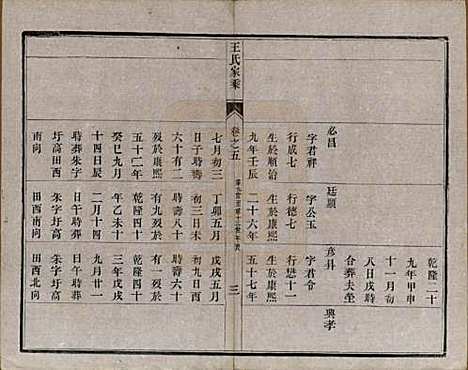 乾隆二十
九年甲申
十一月初
八日戌時
合葬夫坐
必昌
廷顯
彥科
興孝
字君祥
字公玉
字君令
行成七
行德七
行懋十一
生於順治
生於康熙
生於康熙
九年壬辰
二十六年
五十七年
王氏家乘
卷之五
三
七月初三
丁卯五月
戊戌五月
日子時壽
初三日未
初九日酉
六十有二
時壽八十
時壽六十
歿於康熙
有九歿於
有一歿於
五十二年
乾隆四十
乾隆四十
癸巳九月
年乙未十
三年戊戌
十四日申
二月十四
九月廿一
時葬朱字
日午時葬
日午時葬
圩高田西
朱字圩高
朱字圩高
南向
田西南向
田西北向